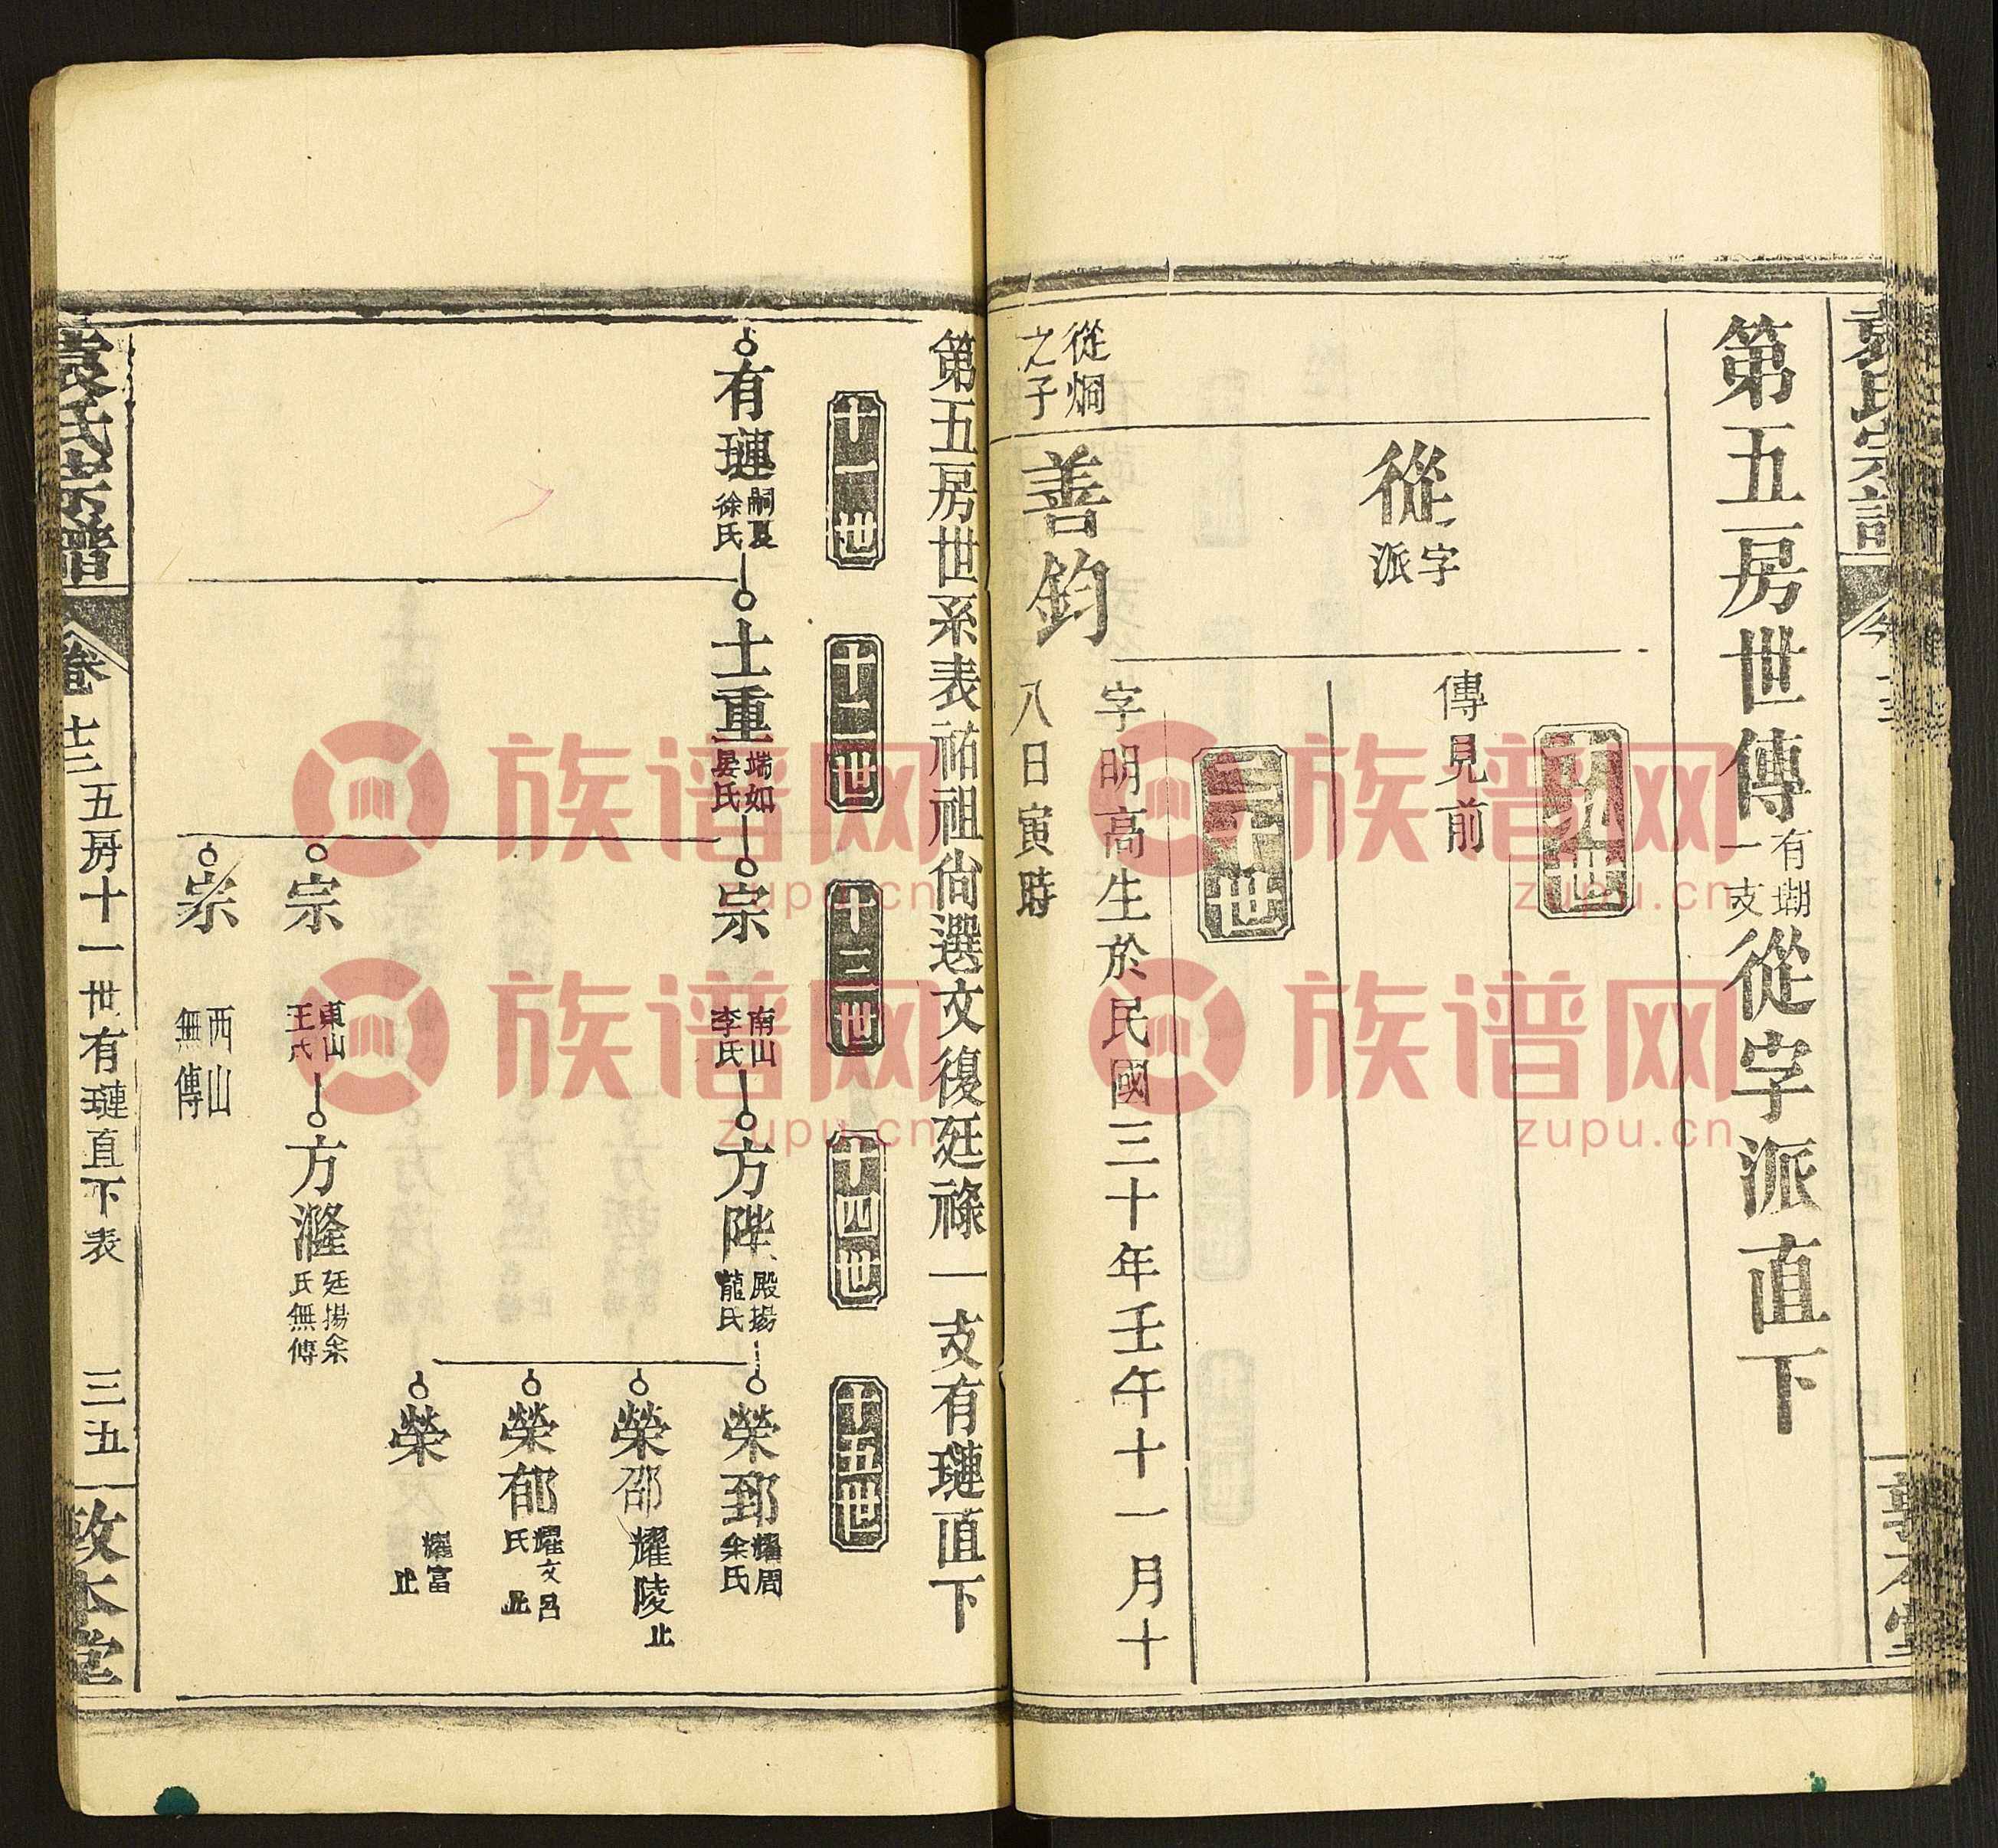 第五房世傳有瑚一支從字派直下
十九世
傳見前
從字派
二十世
從炯之子
善鈞
字明高生於民國三十年壬午十一月十
八日寅時
敦本堂
第五房世系表祐祖尙選文復廷祿一支有璉直下
十一世
十二世
十三世
十四世
十五世
有璉
嗣夏
徐氏
士重
端如
晏氏
宗
南山
李氏
方陛
殿揚
龍氏
榮郅
耀周
余氏
榮邵
耀陵止
榮郁
耀文呂
氏止
榮
耀富
止
宗
東山
王氏
方漋
廷揚余
氏無傳
宗
西山
無傳
袁氏宗譜
卷十三
五房十一世有璉直下表
三五
敦本堂
族谱网
zupu.cn
族谱网
zupu.cn
族谱网
zupu.cn
族谱网
zupu.cn